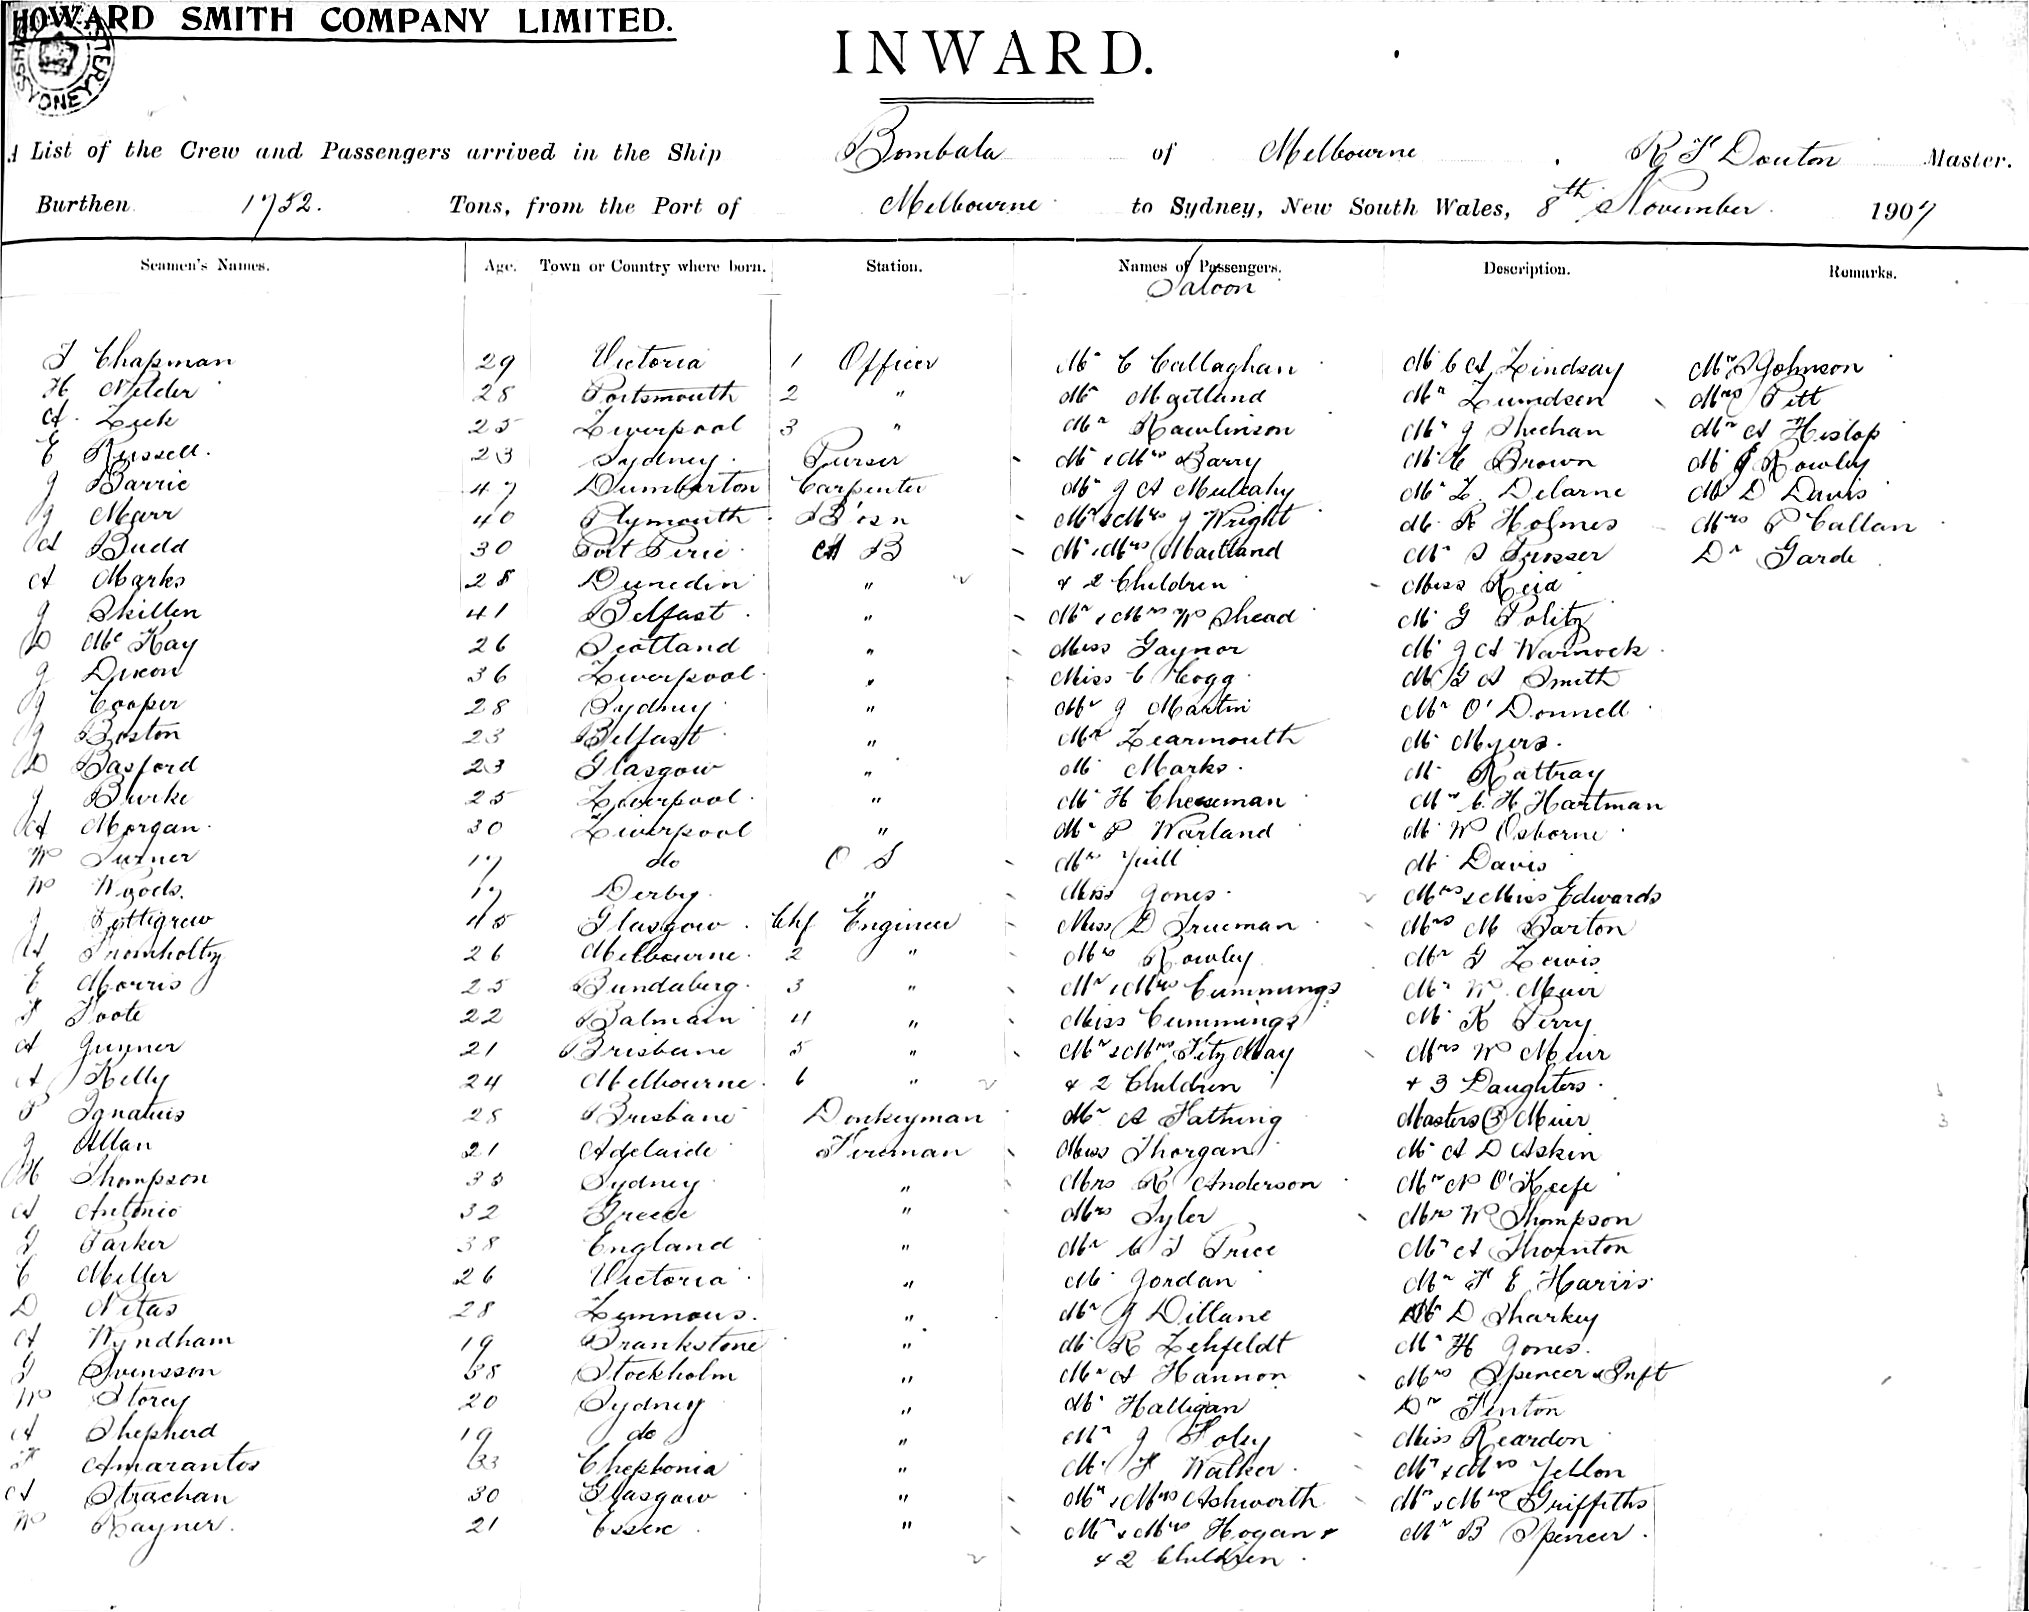 HOWARD SMITH COMPANY LIMITED.
SYDNEY
INWARD.
List of the Crew and Passengers arrived in the Ship Bombala of Melbourne, R F Douton Master.
Burthen 1752. Tons, from the Port of Melbourne to Sydney, New South Wales, 8th November 1907
Seamen's Names. Age. Town or Country where born. Station. Names of Passengers. Description. Remarks.
Saloon
Chapman 29 Victoria 1 Officer Mr C Callaghan Mr C A Lindsay Mr Johnson
H 28 Portsmouth 2 " Mr Maitland Mr Lumdsen Mrs Pitt
A Leek 25 Liverpool 3 " Mr Rawlinson Mr J Sheehan Mr A Hislop
E Russell. 23 Sydney. Purser Mr & Mrs Barry Mr Brown Mr J Rowley
J Barrie 47 Dumbarton Carpenter Mr J A Mulcahy Mr L. Delarne Mr D Davis
J Marr 40 Plymouth B'osn Mr & Mrs J Wright Mr R Holmes Mrs P Callan
A Budd 30 Port Pirie A B Mr & Mrs Maitland Mr S Dr Garde
A Marks 28 Dunedin " & 2 Children Miss Reid
J Skillen 41 Belfast " Mr & Mrs W Shead Mr G Politz
D McKay 26 Scotland " Miss Gaynor Mr J A Warnock
J Dixon 36 Liverpool " Miss C Hogg Mr G A Smith
J Cooper 28 Sydney " Mr J Martin Mr O'Donnell
J Boston 23 Belfast " Mr Learmouth Mr Myers.
D Basford 23 Glasgow " Mr Marks Mr Rattray
J Burke 25 Liverpool " Mr H Cheeseman Mr C H Hartman
A Morgan 30 Liverpool " Mr P Warland Mr W Osborne
W Turner 17 do O S Mr Yuill Mr Davis
W Woods. 17 Derby " Miss Jones Mrs & Miss Edwards
J Pettigrew 45 Glasgow Chf Engineer Miss D Trueman Mrs M Barton
A Tromholtz 26 Melbourne 2 " Mrs Rowley Mr G Lewis
E Morris 25 Bundaberg 3 " Mr & Mrs Cummings Mr W Muir
F Foote 22 Balmain 4 " Miss Cummings Mr R Perry
A Guyner 21 Brisbane 5 " Mr & Mrs Fitz May Mrs W Muir
A Kelly 24 Melbourne 6 " & 2 Children & 3 Daughters
P Ignatuis 28 Brisbane Donkeyman Mr A Fathing Masters (3) Muir
J Allan 21 Adelaide Fireman Miss Thorgan Mr A D Askin
H Thompson 35 Sydney " Mrs R Anderson Mr N O'Keefe
A Antonio 32 Greece " Mrs Tyler Mrs W Thompson
J Parker 38 England " Mr C J Price Mr A Thornton
C Miller 26 Victoria " Mr Jordan Mr F E Harris
D Nitas 28 Limnous. " Mr J Dillane Mr D Sharkey
A Wyndham 19 Brankstone " Mr R Lehfeldt Mr H Jones.
J Svensson 38 Stockholm " Mr A Hannon Mrs Spencer & Inft
W Storey 20 Sydney " Mr Halligan Dr Fenton
A Shepherd 19 do " Mr J Foley Miss Reardon
F Amarantos 33 Chephonia " Mr F Walker Mr & Mrs Yellon
A Strachan 30 Glasgow " Mr & Mrs Ashworth Mr & Mrs Griffiths
W Rayner. 21 Essex " Mr & Mrs Hogan & Mr B Spencer.
& 2 Children